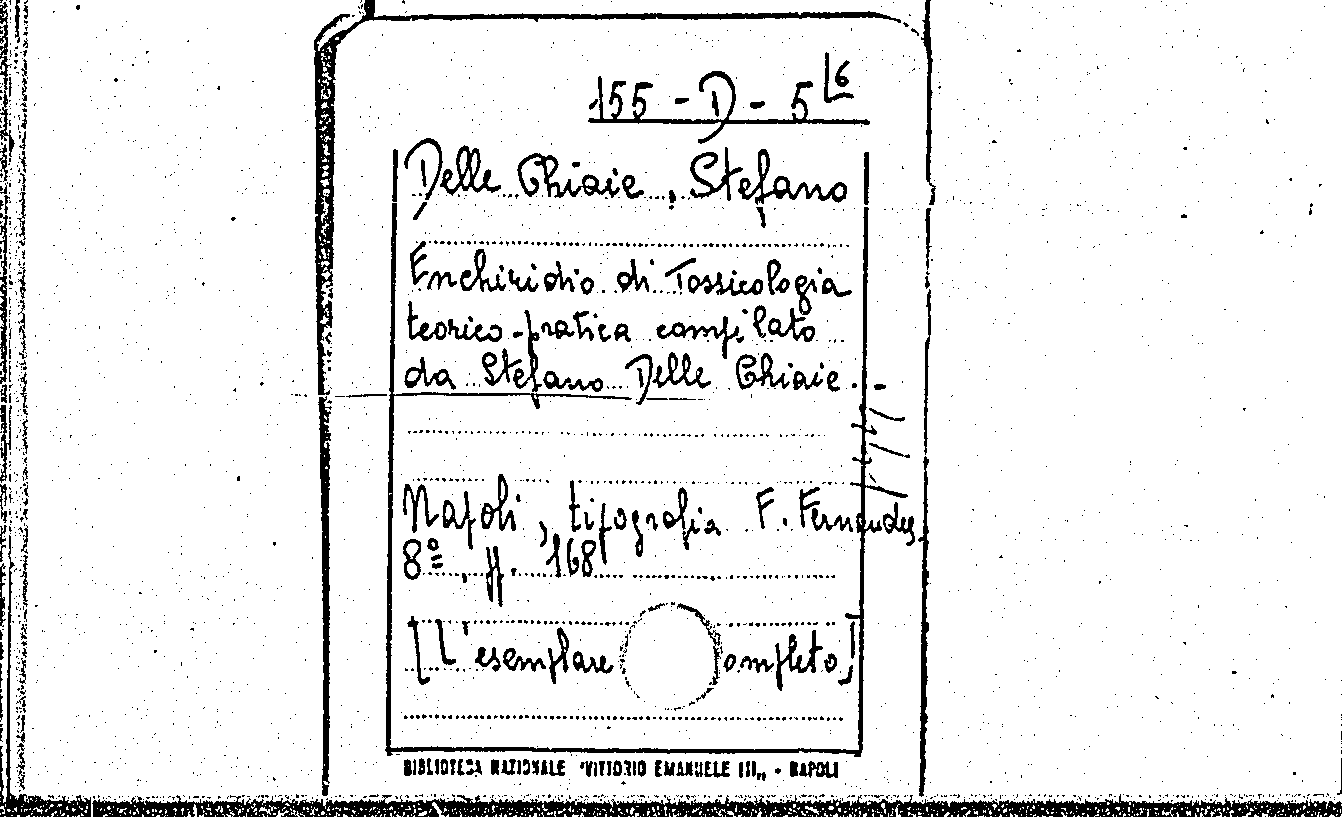 155 - D - 5 L6
Delle Chiaie, Stefano
Enchiridio di Tossicologia
teorico-pratica compilato
da Stefano Delle Chiaie. -
Napoli, tipografia F. Fernandes.
8º, pp. 168
[L'esemplare ompleto]
BIBLIOTECA NAZIONALE "VITTORIO EMANUELE III„ - NAPOLI